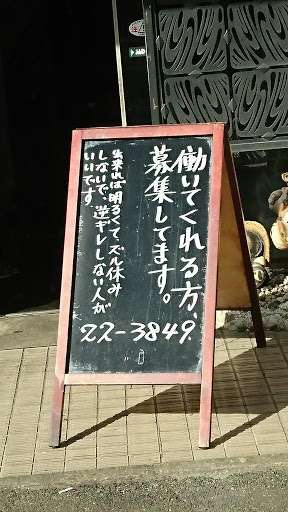 働いてくれる方、
募集してます。
出来れば明るくて、ズル休み
しないで、逆ギレしない人が
いいです。
22-3849